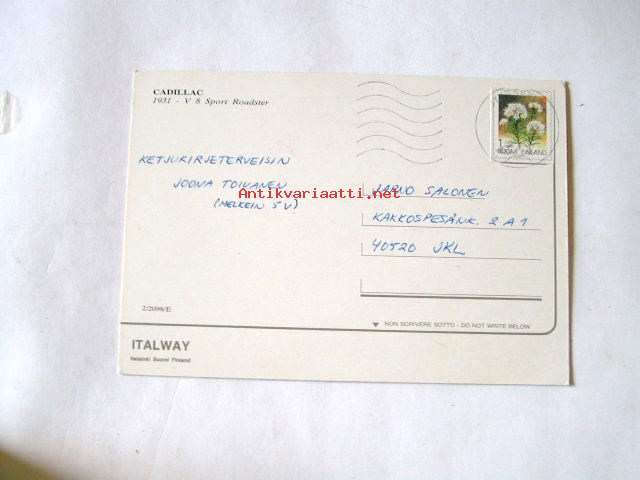 CADILLAC
1931 - V 8 Sport Roadster
SUOMI FINLAND
KETJUKIRJETERVEISIN
JOONA TOIVANEN
(MELKEIN 5 V)
Antikvariaatti.net
JARNO SALONEN
KAKKOSPESÄNK. 2 A 1
40520 JKL
2/20398/E
NON SCRIVERE SOTTO - DO NOT WRITE BELOW
ITALWAY
Helsinki Suomi Finland